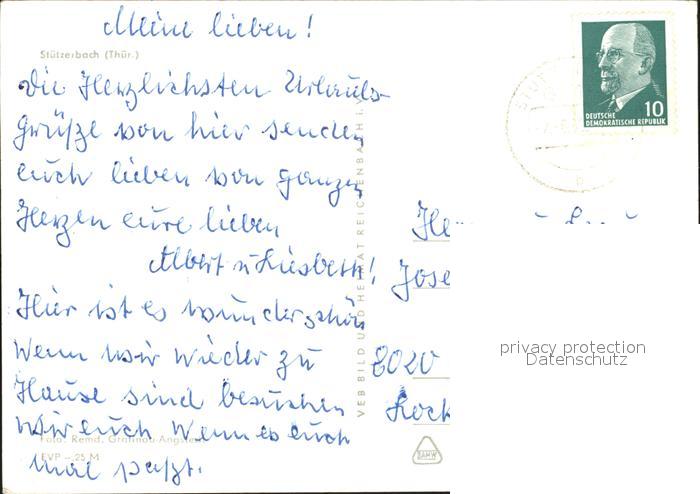 Meine lieben!
Stützerbach (Thür.)
die Herzlichsten Urlaubs-
grüße von hier senden
euch lieben von ganzen
Herzen eure lieben
Albert u Liesbeth!
Hier ist es wunderschön
Wenn wir wieder zu
Hause sind besuchen
wir euch Wenn es euch
mal paßt.
Foto: Remd. Gräfinau-Angstedt
EVP –,25 M
VEB BILD UND HEIMAT REICHENBACH I. V.
BAHW
10
DEUTSCHE
DEMOKRATISCHE REPUBLIK
8020
privacy protection
Datenschutz